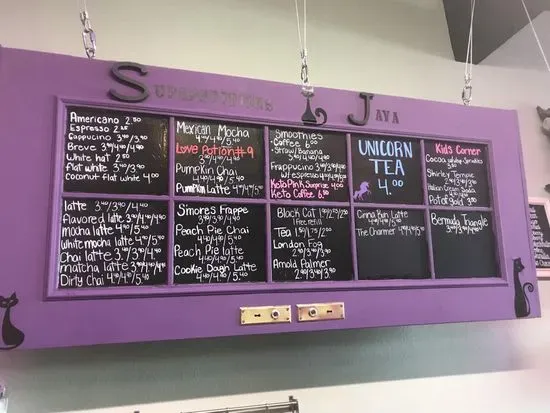 Superstitions Java
Americano 2.50
Espresso 2.25
Cappucino 3.40/3.90
Breve 3.40/3.90
White hot 2.50
flat white 4.00
Coconut Flat White 4.00
Mexican Mocha
4.40/4.90/5.40
Love Potion #9
3.90/4.40/4.90
Pumpkin Chai
4.40/4.90/5.40
Pumpkin Latte 4.40/4.90/5.40
Smoothies
Coffee 5.00
Straw/Banana
Frappucino
w/espresso
Keto Pink Surprise 4.00
Keto Coffee 6.50
UNICORN
TEA
4.00
Kids Corner
Cocoa w/whip Sprinkles
Shirley Temple
Italian Cream Soda
Pot of Gold
latte 3.40/3.90/4.40
flavored latte 3.90/4.40/4.90
mocha latte 4.40/4.90/5.40
White mocha latte 4.40/4.90/5.40
Chai latte 3.40/3.90/4.40
matcha latte 3.90/4.40/4.90
Dirty Chai 4.40/4.90/5.40
S'mores Frappe
Peach Pie Chai
4.40/4.90/5.40
Peach Pie latte
4.40/4.90/5.40
Cookie Dough Latte
4.40/4.90/5.40
Black Cat
(Free Refill)
Tea 1.50/1.75/2.00
London Fog
2.90/3.40/3.90
Arnold Palmer
2.90/3.40/3.90
Cinna Pun Latte
The Charmer
Bermuda Triangle